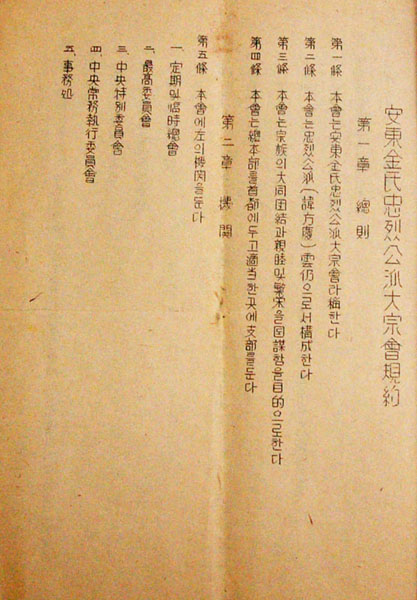 安東金氏忠烈公派大宗會規約
第一章 總則
第一條 本會는安東金氏忠烈公派大宗會라稱한다
第二條 本會는忠烈公派(諱方慶)雲仍으로서構成한다
第三條 本會는宗族의大同团結과親睦및繁荣을図謀함을目的으로한다
第四條 本會는總本部를首都에두고適当한곳에支部를둔다
第二章 機関
第五條 本會에左의機関을둔다
一. 定期및临時總會
二. 最高委員會
三. 中央特別委員會
四. 中央常務執行委員會
五. 事務処